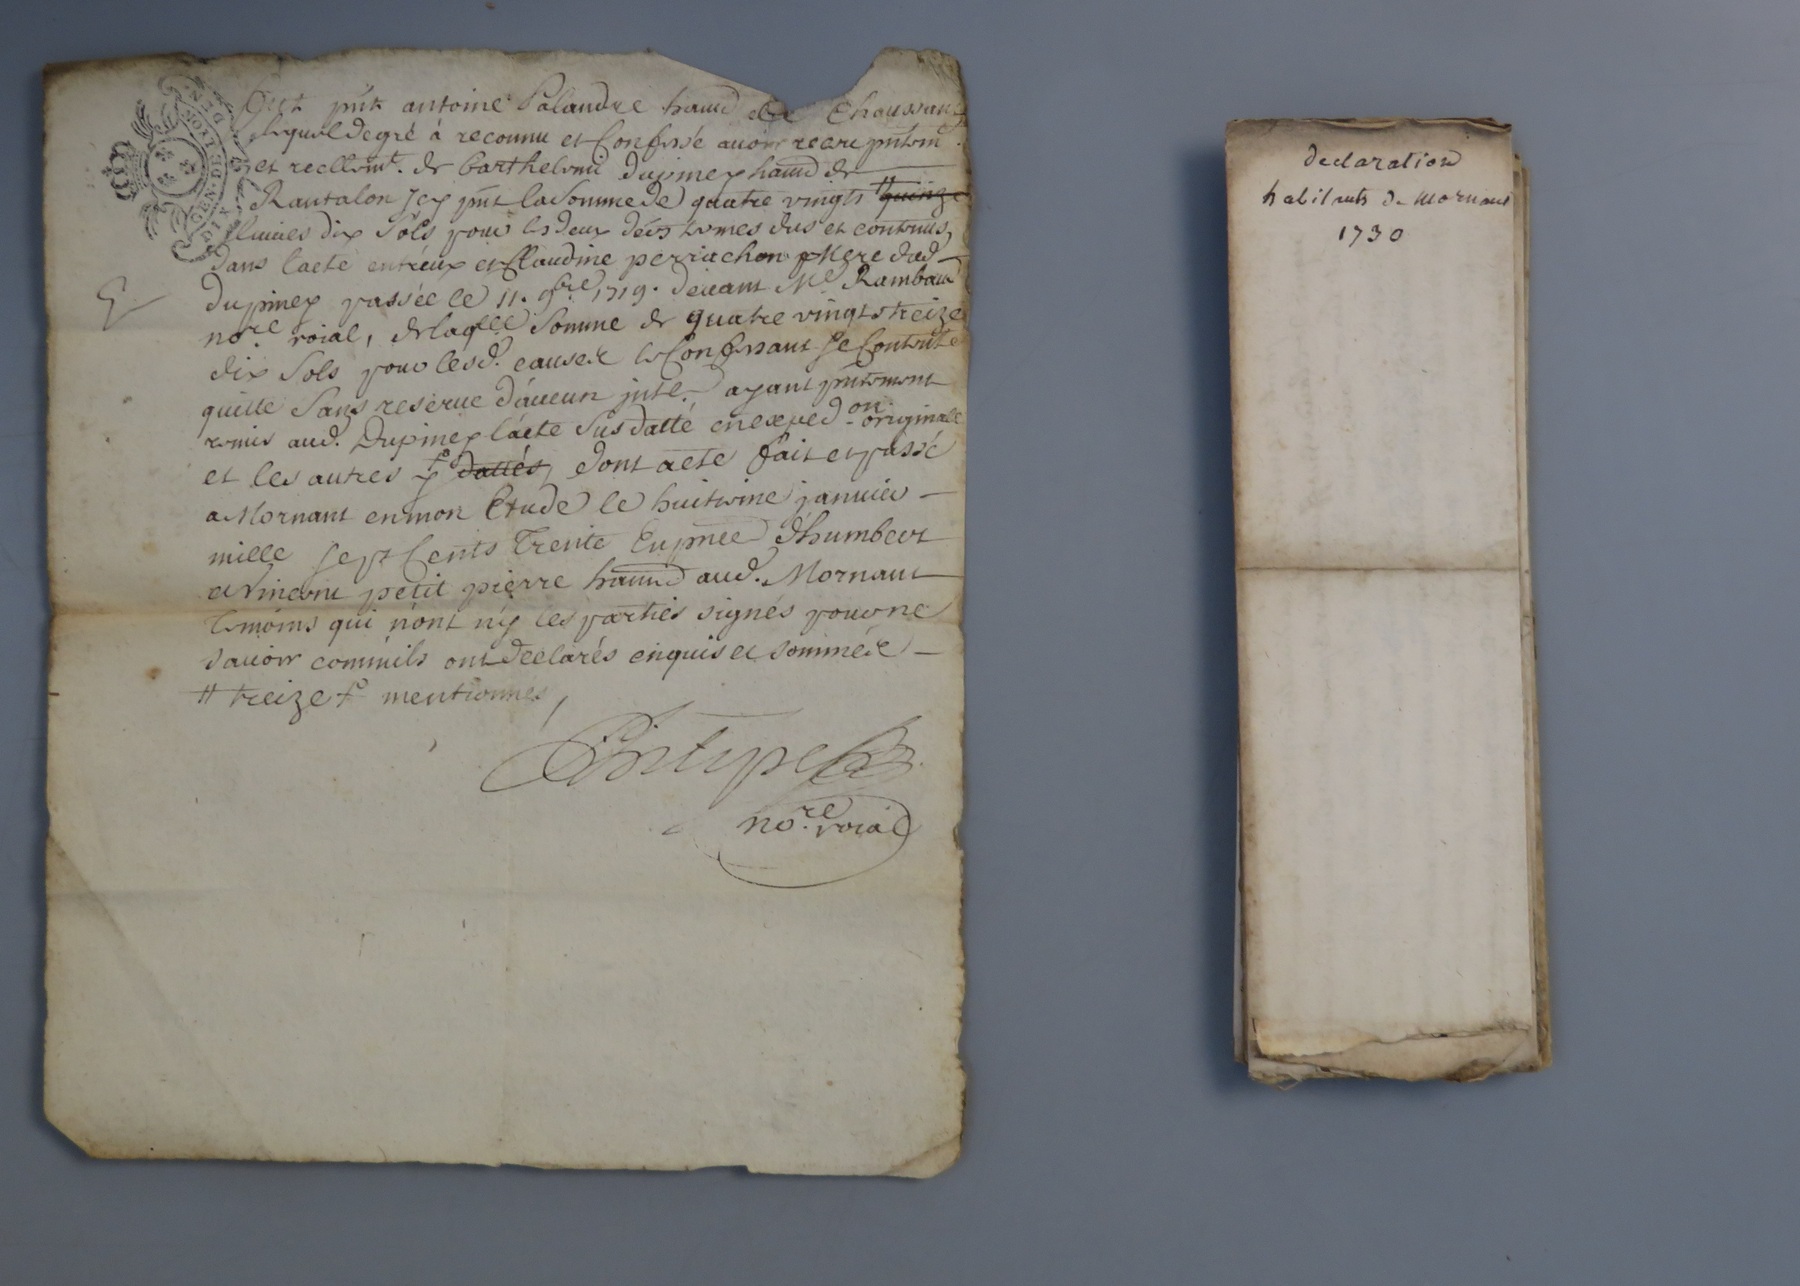 GEN. DE LYON
fut pnt antoine Palandre hannt de Chaussant
lequel de gré à reconnu et Confessé auoir receu pntemt
et reellemt. de barthelemi dupiney hannt de
Rantalon Icy pnt la Somme de quatre vingts # quinze
liures dix Sols pour les deux ders termes dus et contenus,
Dans l'acte entr'eux et Claudine perrachon mere dud
dupiney passée le 11. 9bre 1719. deuant Me Rambaud
nore. roial, de laqlle Somme de quatre vingts treize
dix Sols pour lesd. causes le Confessant Se Contente
quitte Sans reserue d'aucun jnte. ayant pntement
remis aud. Dupiney l'acte Susdatté en exped-on originale
et les autres dattés, dont acte fait et passé
a Mornant en mon Etude le huitieme januier
mille Sept Cents Trente En pnce d'humbert
et Vincent petit pierre hannt aud. Mornant
temoins qui n'ont n'y les parties signés pour ne
sauoir comm'ils ont declarés enquis et sommés
# treize mentionnés,
nore. roial
declaration
habitants de Mornant
1730